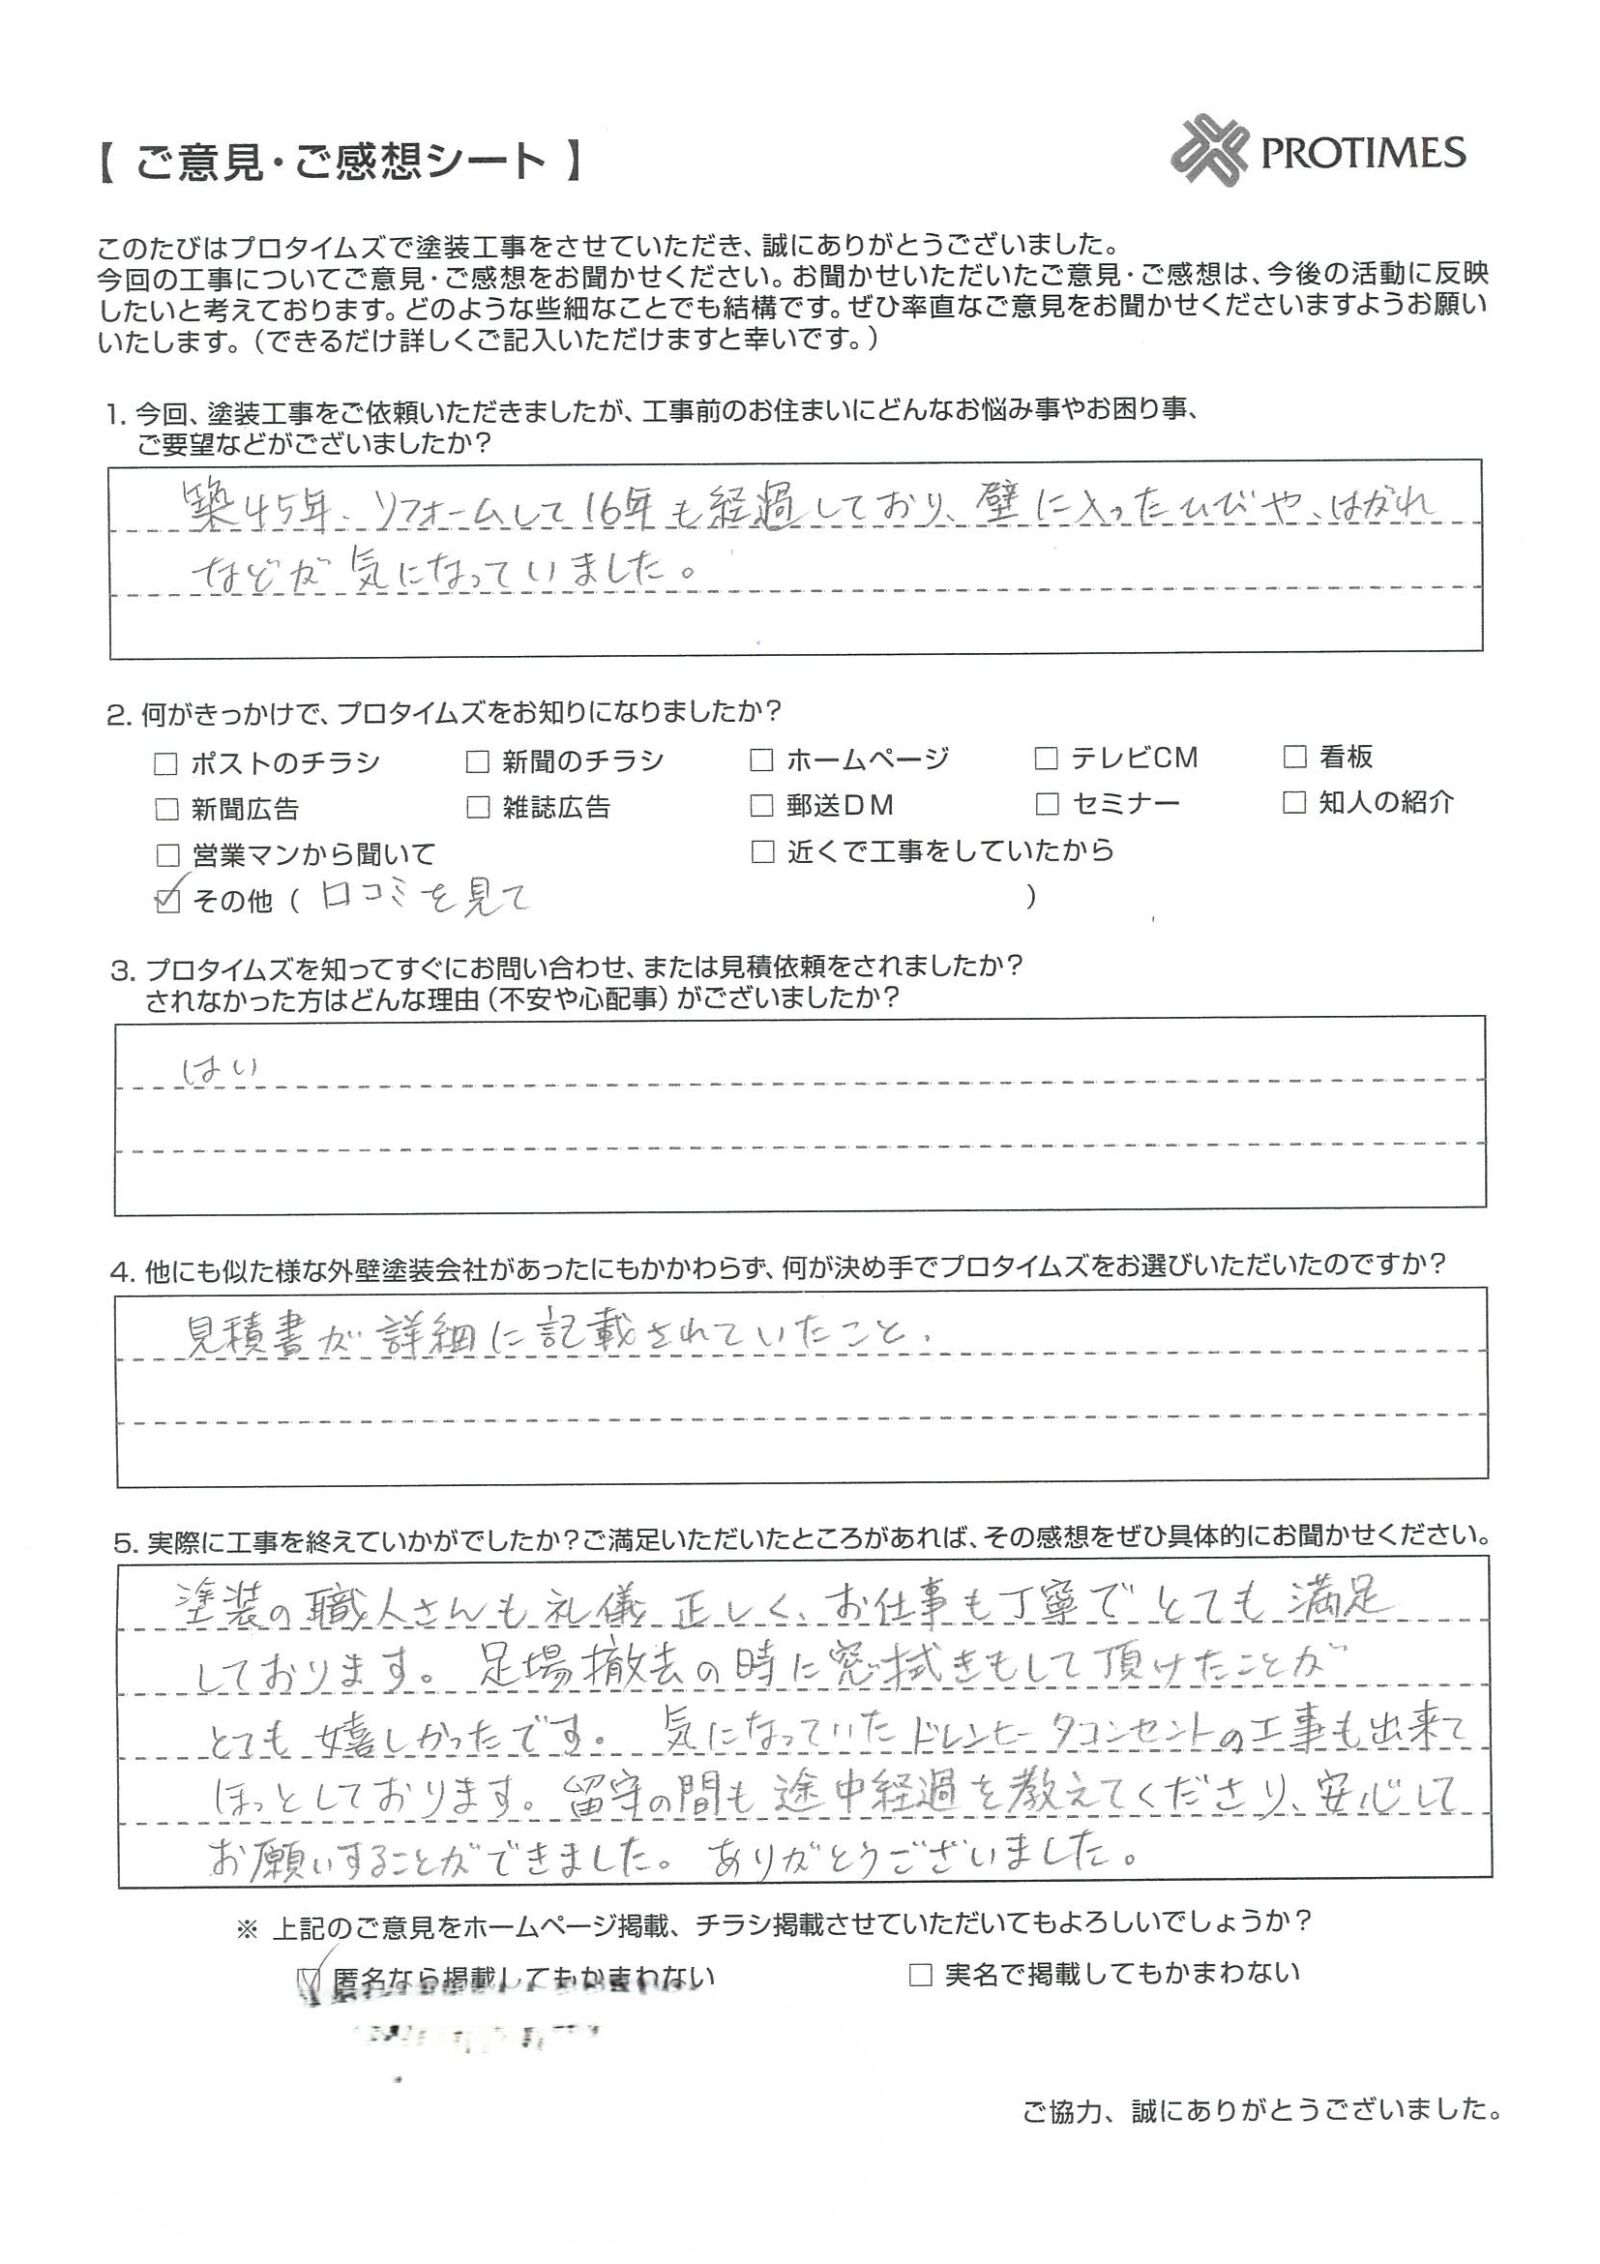 【 ご意見・ご感想シート 】
PROTIMES
このたびはプロタイムズで塗装工事をさせていただき、誠にありがとうございました。
今回の工事についてご意見・ご感想をお聞かせください。お聞かせいただいたご意見・ご感想は、今後の活動に反映
したいと考えております。どのような些細なことでも結構です。ぜひ率直なご意見をお聞かせくださいますようお願い
いたします。（できるだけ詳しくご記入いただけますと幸いです。）
1. 今回、塗装工事をご依頼いただきましたが、工事前のお住まいにどんなお悩み事やお困り事、
ご要望などがございましたか？
築45年、リフォームして16年も経過しており、壁に入ったひびや、はがれ
などが気になっていました。
2. 何がきっかけで、プロタイムズをお知りになりましたか？
□ ポストのチラシ □ 新聞のチラシ □ ホームページ □ テレビCM □ 看板
□ 新聞広告 □ 雑誌広告 □ 郵送DM □ セミナー □ 知人の紹介
□ 営業マンから聞いて □ 近くで工事をしていたから
☑ その他（ 口コミを見て ）
3. プロタイムズを知ってすぐにお問い合わせ、または見積依頼をされましたか？
されなかった方はどんな理由（不安や心配事）がございましたか？
はい
4. 他にも似た様な外壁塗装会社があったにもかかわらず、何が決め手でプロタイムズをお選びいただいたのですか？
見積書が詳細に記載されていたこと.
5. 実際に工事を終えていかがでしたか？ご満足いただいたところがあれば、その感想をぜひ具体的にお聞かせください。
塗装の職人さんも礼儀正しく、お仕事も丁寧でとても満足
しております。足場撤去の時に窓拭きもして頂けたことが
とても嬉しかったです。気になっていたドレンヒータコンセントの工事も出来て
ほっとしております。留守の間も途中経過を教えてくださり、安心して
お願いすることができました。ありがとうございました。
※ 上記のご意見をホームページ掲載、チラシ掲載させていただいてもよろしいでしょうか？
☑ 匿名なら掲載してもかまわない □ 実名で掲載してもかまわない
ご協力、誠にありがとうございました。